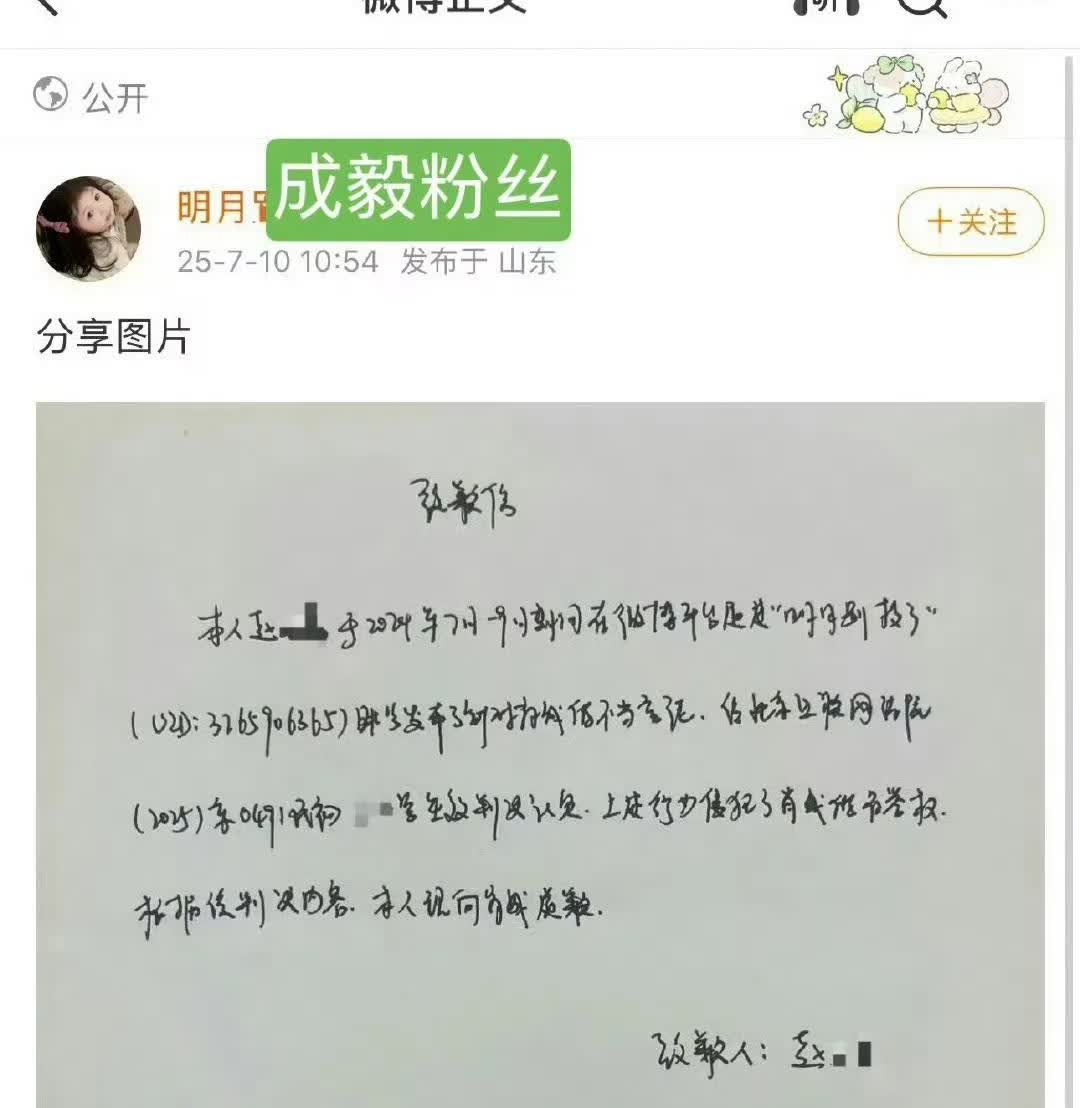 微博正文
公开
明月
成毅粉丝
+关注
25-7-10 10:54 发布于 山东
分享图片
致歉信
本人赵 于2024年7月-9月期间在微博平台通过"明月别枝了"
(UID:3765906365)账号发布了针对肖战的不当言论.经北京互联网法院
(2025)京0491民初 号生效判决认定.上述行为侵犯了肖战的名誉权.
根据该判决内容.本人现向肖战致歉.
致歉人:赵